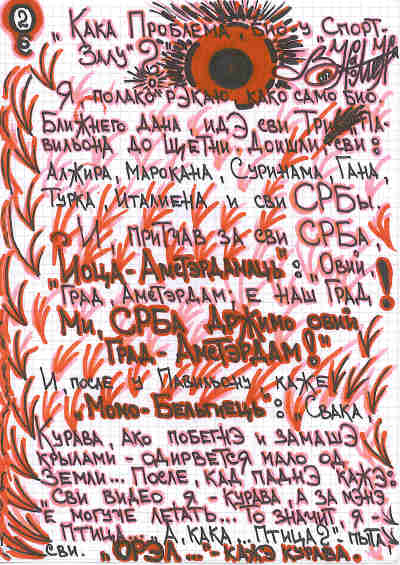 2
„Кака Проблема, био у Спорт-
Залу"?
Я – полако рэкаю, како само био.
Ближнего дана, идэ сви Три „Па-
вильона до Шетни. Доишли сви:
Алжира, Марокана, Суринама, Гана,
Турка, Италиена и сви СРБы.
И притчав за сви СРБа,
„Йоца-Амстэрдамаць": „Овий,
„Град, Амстэрдам, е наш Град!
Ми, СРБа држимо овий
Град-Амстэрдам!"
И, после у Павильону каже
„Момо-Бельгиець": „Свака,
Курава, ако побегнэ и замашэ
крылами – одирвется мало од
Земли... После, кад паднэ кажэ:
„Сви видео, я – курава, а за мэнэ
е могуче летать... То значит я –
Птица... „А, кака... Птица?" – пыта
сви. „ОРЭЛ..." – кажэ курава.